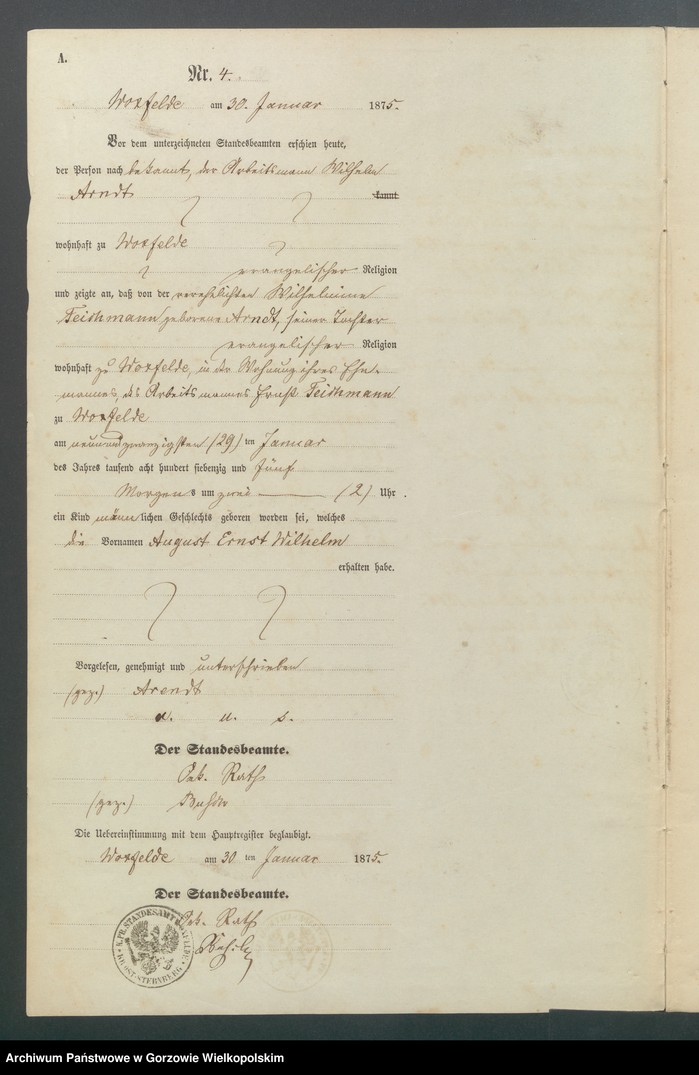 A.
Nr. 4.
Woxfelde am 30. Januar 1875.
Vor dem unterzeichneten Standesbeamten erschien heute,
der Person nach bekannt, der Arbeitsmann Wilhelm
Arndt kannt
wohnhaft zu Woxfelde
evangelischer Religion
und zeigte an, daß von der verehelichten Wilhelmine
Teichmann geborene Arndt, seiner Tochter
evangelischer Religion
wohnhaft zu Woxfelde, in der Wohnung ihres Ehe-
mannes, des Arbeitsmannes Ernst Teichmann
zu Woxfelde
am neunundzwanzigsten (29) ten Januar
des Jahres tausend acht hundert siebenzig und fünf
Morgens um zwei (2) Uhr
ein Kind männlichen Geschlechts geboren worden sei, welches
die Vornamen August Ernst Wilhelm
erhalten habe.
Vorgelesen, genehmigt und unterschrieben
(gez.) Arendt
a. u. s.
Der Standesbeamte.
Rath
(gez.)
Die Uebereinstimmung mit dem Hauptregister beglaubigt.
Woxfelde am 30 ten Januar 1875.
Der Standesbeamte.
Rath
K.PR.STANDESAMT WOXFELDE
KR. OST-STERNBERG
Archiwum Państwowe w Gorzowie Wielkopolskim